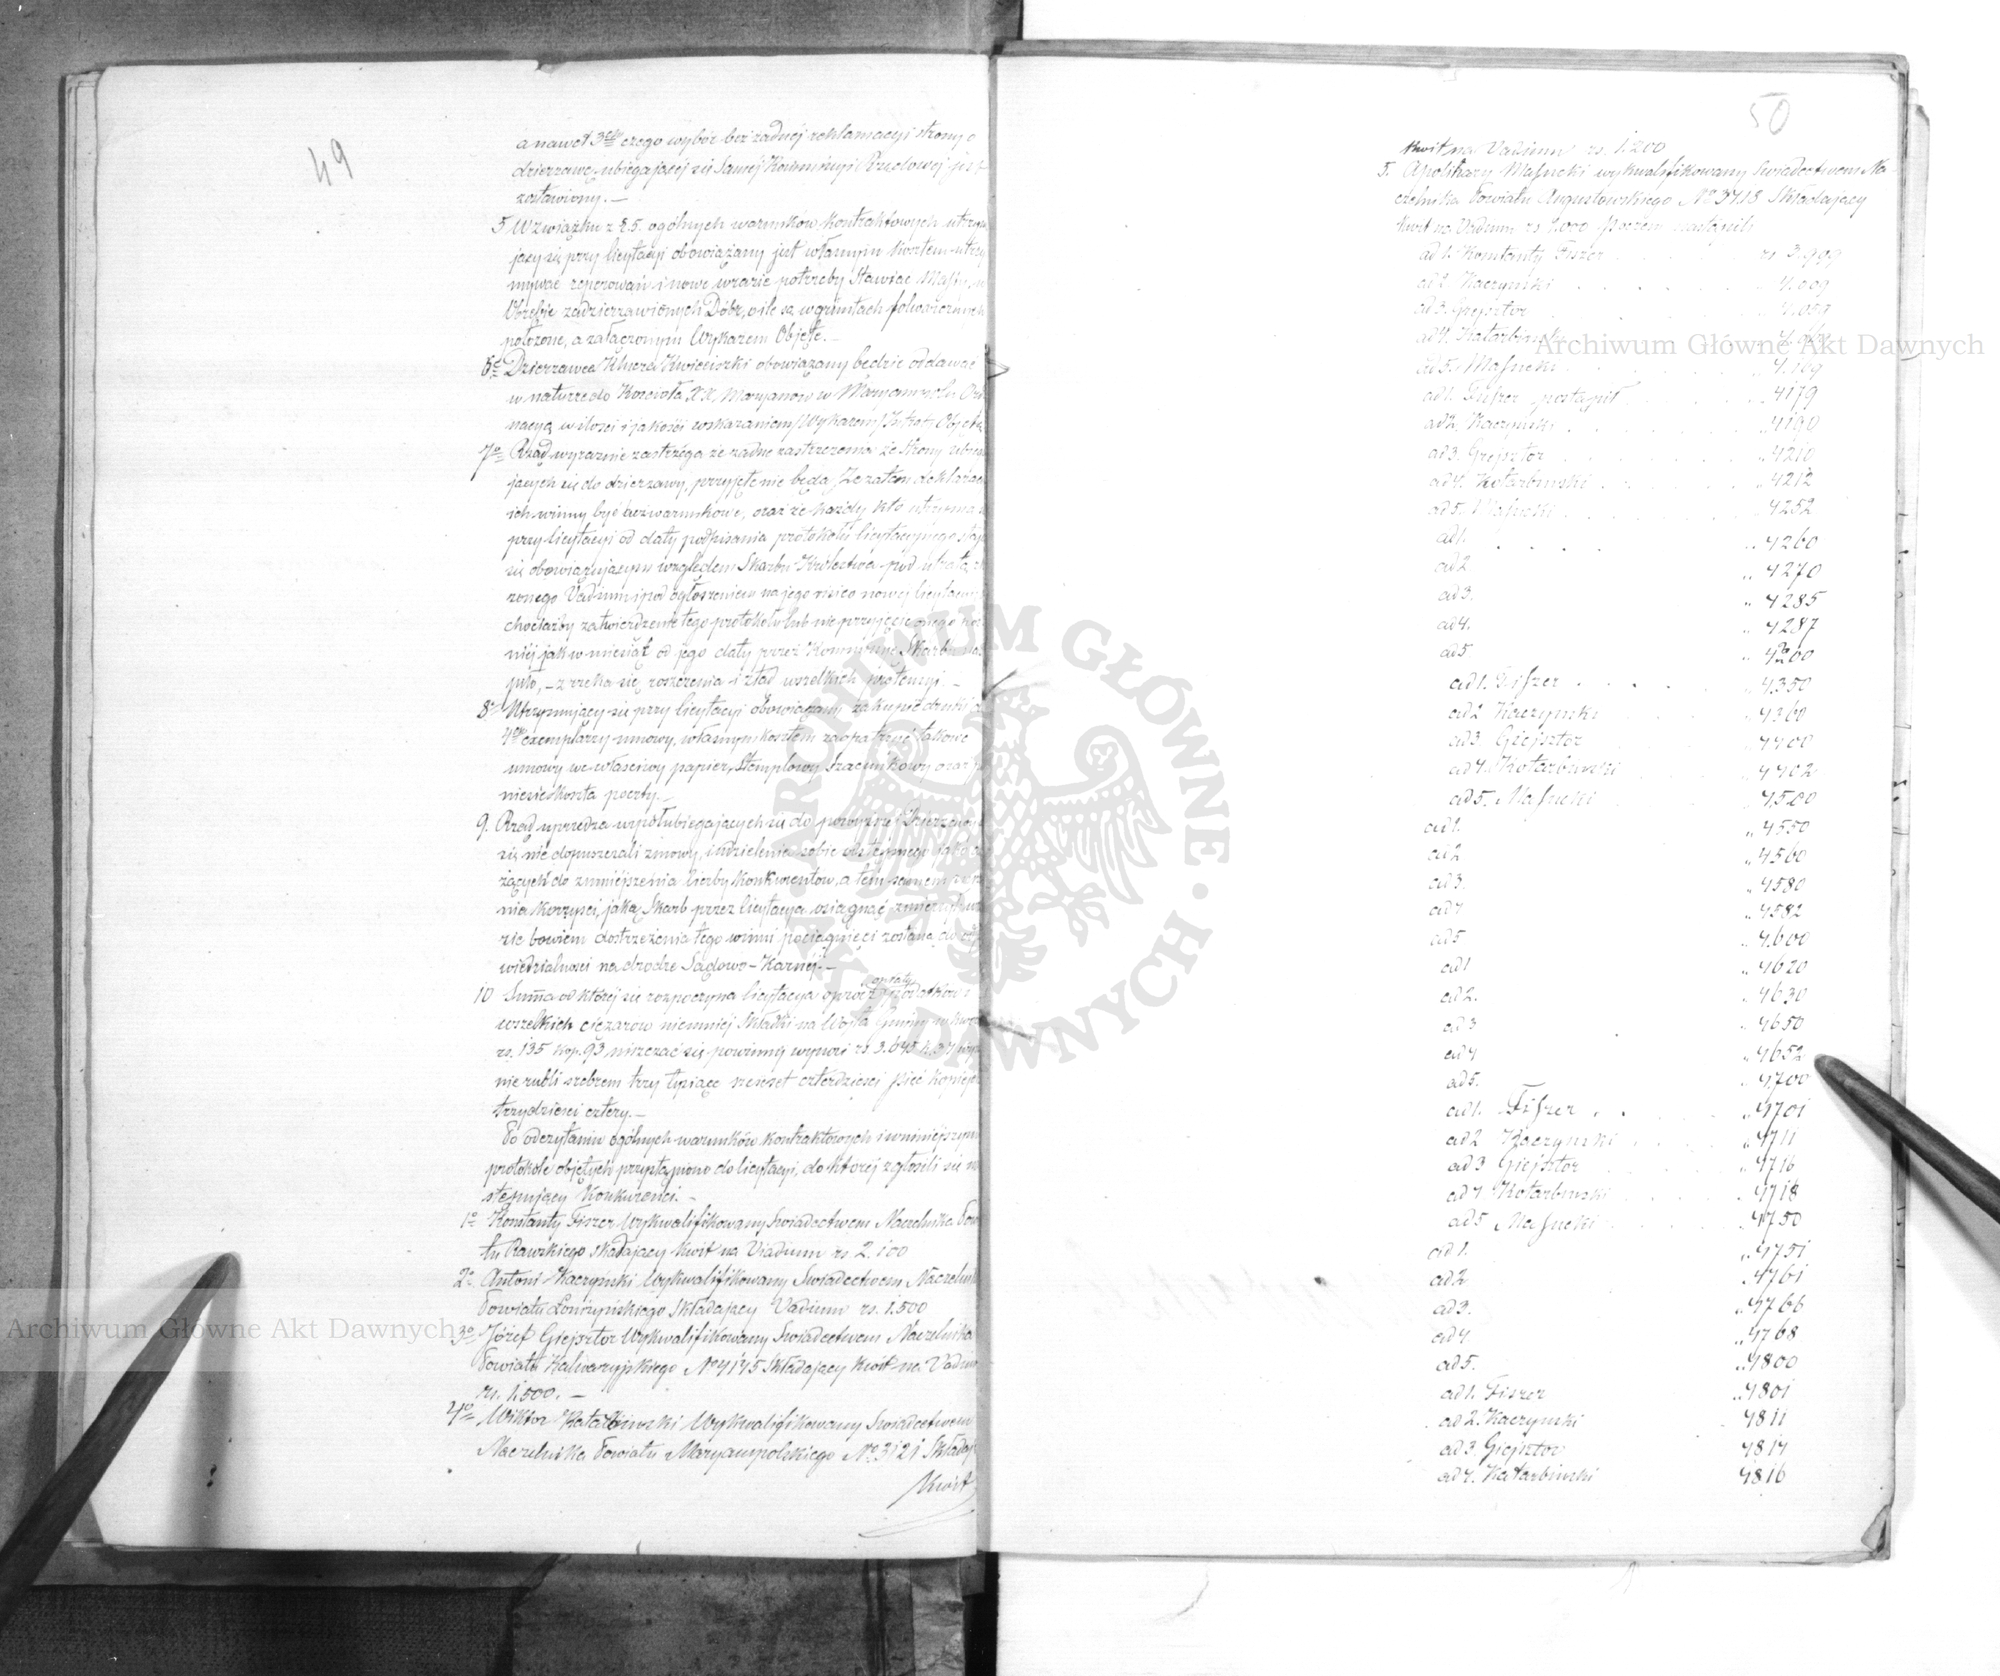 49
a nawet 3go czego wybór bez żadnéj reklamacyi strony o
dzierzawę ubiegającéj się Saméj Kommissyi Rządowéj jest
zostawiony. —
5 W związku z § 5. ogólnych warunków kontraktowych utrzymu
jący się przy licytacyi obowiązany jest własnym kosztem utrzy
mywać reperować i nowe w razie potrzeby stawiać
Obrębie zadzierzawionych Dóbr, o ile są w gruntach folwarcznych
położone, a załączonym Wykazem Objęte. —
6º Dzierzawca Klucza Kwieciszki obowiązany będzie oddawać
w naturze do Kościoła XX. Maryanów w Maryampolu Ord
naryą w ilości i jakości wskazaniem Wykazem Intrat Objętą
7º Rząd wyraznie zastrzéga że żadne zastrzeżenia ze strony ubiega
jących się do dzierzawy, przyjęte nie będą, że zatém deklaracye
ich winny być bezwarunkowe, oraz że każdy kto utrzyma się
przy licytacyi od daty podpisania protokółu licytacyjnego staje
się obowiązującym względem Skarbu Królestwa pod utratą zło
żonego Vadium i pod ogłoszeniem na jego risico nowéj licytacyi
chociażby zatwierdzenie tego protokółu lub nie przyjęcie onego
niéj jak w miesiąt od jego daty przez Kommissyę Skarbu nas
piło, — zrzeka się roszczenia i ztąd wszelkich pretensyi. —
8º Utrzymujący się przy licytacyi obowiązany zakupić druki do
4ch exemplarzy umowy, własnym kosztem zaopatrzyć takowe
umowy we właściwy papier Stemplowy Szacunkowy oraz po
niesie koszta poczty. —
9. Rząd uprzedza współubiegających się do powyższéj Dzierzawy
się nie dopuszczali zmowy, i udzielenia sobie odstępnego jako dą
żących do zmniejszenia liczby konkurentów, a tém samém
nia korzyści, jaką Skarb przez licytacyą osiągnąć zmierza, w ra
zie bowiem dostrzeżenia tego winni pociągnięci zostaną do odpo
wiedzialności na drodze Sądowo-Karnéj. —
10 Summa od któréj się rozpoczyna licytacya oprócz opłaty podatków i
wszelkich ciężarów niemniéj Składki na Wójta Gminy w kwocie
rs. 135 kop. 93 uiszczać się powinnéj wynosi rs. 3.645 k. 34 wyraz
nie rubli srebrem trzy tysiące szesset czterdzieści pięć kopiejek
trzydzieści cztery. —
Po odczytaniu ogólnych warunków kontraktowych i w niniejszym
protokóle objętych przystąpiono do licytacyi, do któréj zgłosili się na
stępujący Konkurenci. —
1º Konstanty Fiszer Wykwalifikowany Świadectwem Naczelnika Powia
tu Rawskiego składający kwit na Viadium rs 2.100
2º Antoni Kaczyński Wykwalifikowany Świadectwem Naczelnika
Powiatu Łomżyńskiego Składający Vadium rs. 1.500
3º Józef Giejsztor Wykwalifikowany Świadectwem Naczelnika
Powiatu Kalwaryjskiego Nº 4145 Składający kwit na Vadium
rs. 1.500. —
4º Wiktor Kotarbiński Wykwalifikowany Świadectwem
Naczelnika Powiatu Maryampolskiego Nº 3121 Składają
kwit
50
kwit na Vadium rs. 1.200
5. Apolinary Masucki wykwalifikowany Świadectwem Na-
czelnika Powiatu Augustowskiego Nº 3718 Składający
kwit na Vadium rs 1.000 Poczém nastąpili
ad 1. Konstanty Fiszer . . . rs 3.999
ad 2 Kaczyński . . . . „ 4.009
ad 3. Giejsztor „ 4.059
ad 4. Kotarbiński
ad 5. Masucki . . . „ 4.169
ad 1. Fiszer postąpił . . . „ 4179
ad 2. Kaczyński . . . „ 4190
ad 3. Giejsztor . . . „ 4210
ad 4. Kotarbiński . . . „ 4212
ad 5. Masucki . . . „ 4252
ad 1. . . . . „ 4260
ad 2 „ 4270
ad 3. „ 4285
ad 4. „ 4287
ad 5
ad 1. Fiszer . . . „ 4350
ad 2 Kaczyński „ 4360
ad 3 Giejsztor „ 4400
ad 4. Kotarbiński „ 4402
ad 5. Masucki „ 4500
ad 1. „ 4550
ad 2 „ 4560
ad 3. „ 4580
ad 4 „ 4582
ad 5 „ 4600
ad 1 „ 4620
ad 2. „ 4630
ad 3 „ 4650
ad 4 „ 4652
ad 5. „ 4700
ad 1. Fiszer . . . „ 4701
ad 2 Kaczyński . . . „ 4711
ad 3 Giejsztor „ 4716
ad 4 Kotarbiński . . . „ 4718
ad 5 Masucki . . . „ 4750
ad 1. „ 4751
ad 2 „ 4761
ad 3. „ 4766
ad 4 „ 4768
ad 5. „ 4800
ad 1. Fiszer „ 4801
ad 2. Kaczyński 4811
ad 3 Giejsztor 4814
ad 4. Kotarbiński 4816
Archiwum Główne Akt Dawnych
Archiwum Główne Akt Dawnych
ARCHIWUM GŁÓWNE AKT DAWNYCH